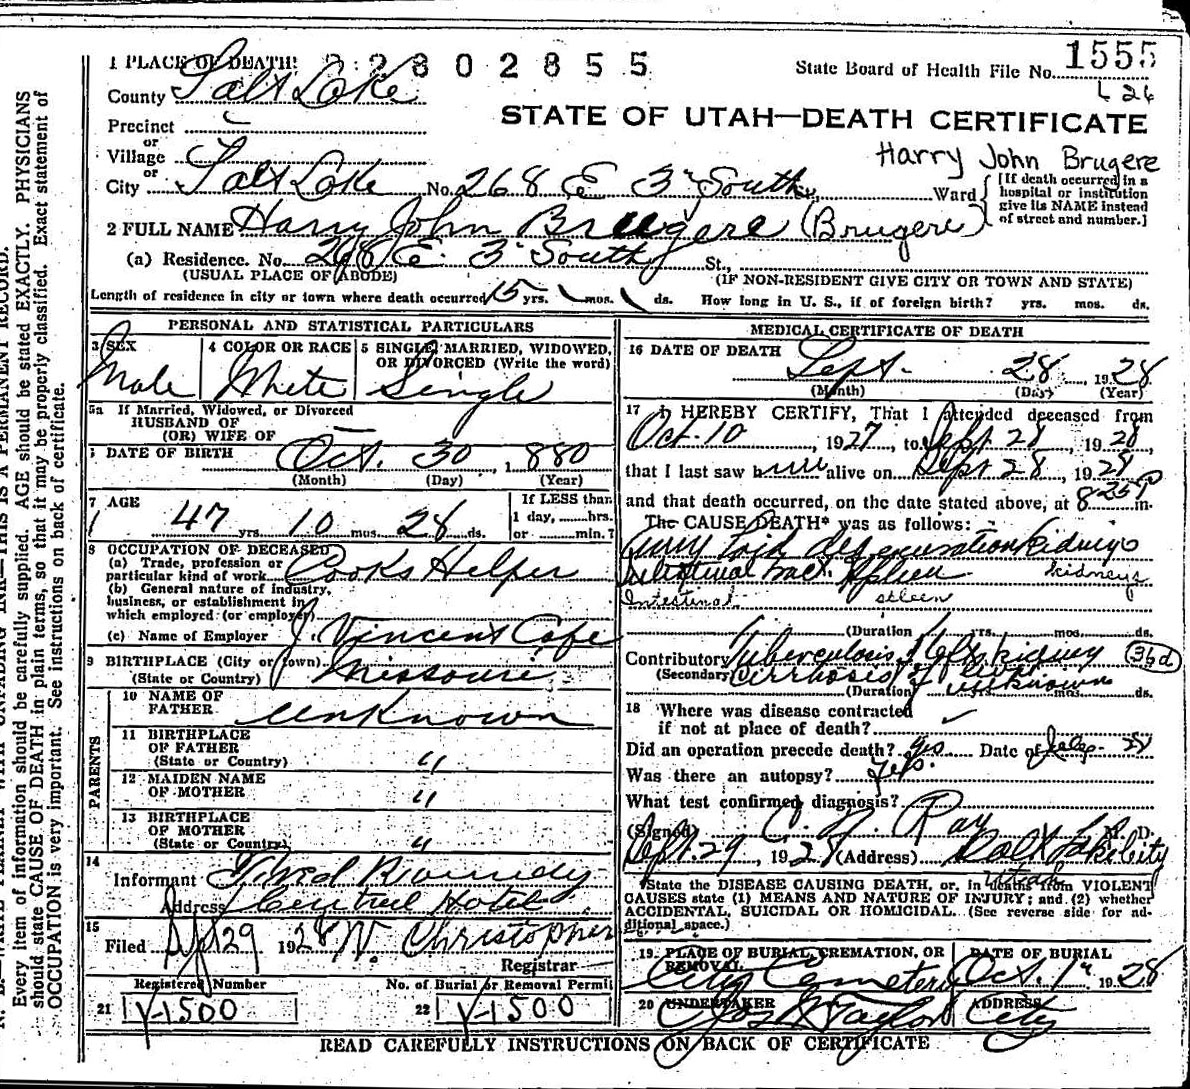 1 PLACE OF DEATH: 2 2 8 0 2 8 5 5
State Board of Health File No. 1555
L 26
County Salt Lake
STATE OF UTAH—DEATH CERTIFICATE
Precinct
or
Village
or
City Salt Lake No. 268 E 3rd South Ward
Harry John Brugere
[If death occurred in a hospital or institution give its NAME instead of street and number.]
2 FULL NAME Harry John Brugere (Brugere)
(a) Residence. No. 268 E. 3rd South St.,
(USUAL PLACE OF ABODE) (IF NON-RESIDENT GIVE CITY OR TOWN AND STATE)
Length of residence in city or town where death occurred 15 yrs. mos. ds. How long in U. S., if of foreign birth? yrs. mos. ds.
PERSONAL AND STATISTICAL PARTICULARS
3 SEX Male
4 COLOR OR RACE White
5 SINGLE, MARRIED, WIDOWED, OR DIVORCED (Write the word) Single
5a If Married, Widowed, or Divorced
HUSBAND OF
(OR) WIFE OF —
DATE OF BIRTH Oct. 30, 1880
(Month) (Day) (Year)
7 AGE 47 yrs. 10 mos. 28 ds.
If LESS than
1 day, ......hrs.
or ......min.?
8 OCCUPATION OF DECEASED
(a) Trade, profession or
particular kind of work Cooks Helper
(b) General nature of industry,
business, or establishment in
which employed (or employer)
(c) Name of Employer J. Vincent Cafe
9 BIRTHPLACE (City or town)
(State or Country) Missouri
PARENTS
10 NAME OF
FATHER Unknown
11 BIRTHPLACE
OF FATHER
(State or Country) "
12 MAIDEN NAME
OF MOTHER "
13 BIRTHPLACE
OF MOTHER
(State or Country) "
14
Informant Kennedy
Address Central Hotel
15
Filed Sept 29 1928 W. Christopher
Registrar
Registered Number No. of Burial or Removal Permit
21 V-1500 22 V-1500
MEDICAL CERTIFICATE OF DEATH
16 DATE OF DEATH Sept. 28, 1928
(Month) (Day) (Year)
17 I HEREBY CERTIFY, That I attended deceased from
Oct. 10, 1927, to Sept 28, 1928,
that I last saw him alive on Sept 28, 1928
and that death occurred, on the date stated above, at 8 25 P m.
The CAUSE DEATH* was as follows:
Amyloid degeneration kidneys
Intestinal tract. Spleen kidneys
Intestinal spleen
(Duration) yrs. mos. ds.
Contributory Tuberculosis left kidney 36d
(Secondary) Cirrhosis of liver
(Duration) unknown mos. ds.
18 Where was disease contracted
if not at place of death?
Did an operation precede death? yes Date of
Was there an autopsy? Yes.
What test confirmed diagnosis?
(Signed) C. N. Ray M. D.
Sept. 29, 1928 (Address) Salt Lake City
Utah
*State the DISEASE CAUSING DEATH, or, in deaths from VIOLENT
CAUSES state (1) MEANS AND NATURE OF INJURY; and (2) whether
ACCIDENTAL, SUICIDAL OR HOMICIDAL. (See reverse side for additional space.)
19 PLACE OF BURIAL, CREMATION, OR REMOVAL City Cemetery
DATE OF BURIAL Oct. 1st, 1928
20 UNDERTAKER Jos Wm Taylor
ADDRESS City
READ CAREFULLY INSTRUCTIONS ON BACK OF CERTIFICATE
Every item of information should be carefully supplied. AGE should be stated EXACTLY. PHYSICIANS
should state CAUSE OF DEATH in plain terms, so that it may be properly classified. Exact statement of
OCCUPATION is very important. See instructions on back of certificate.